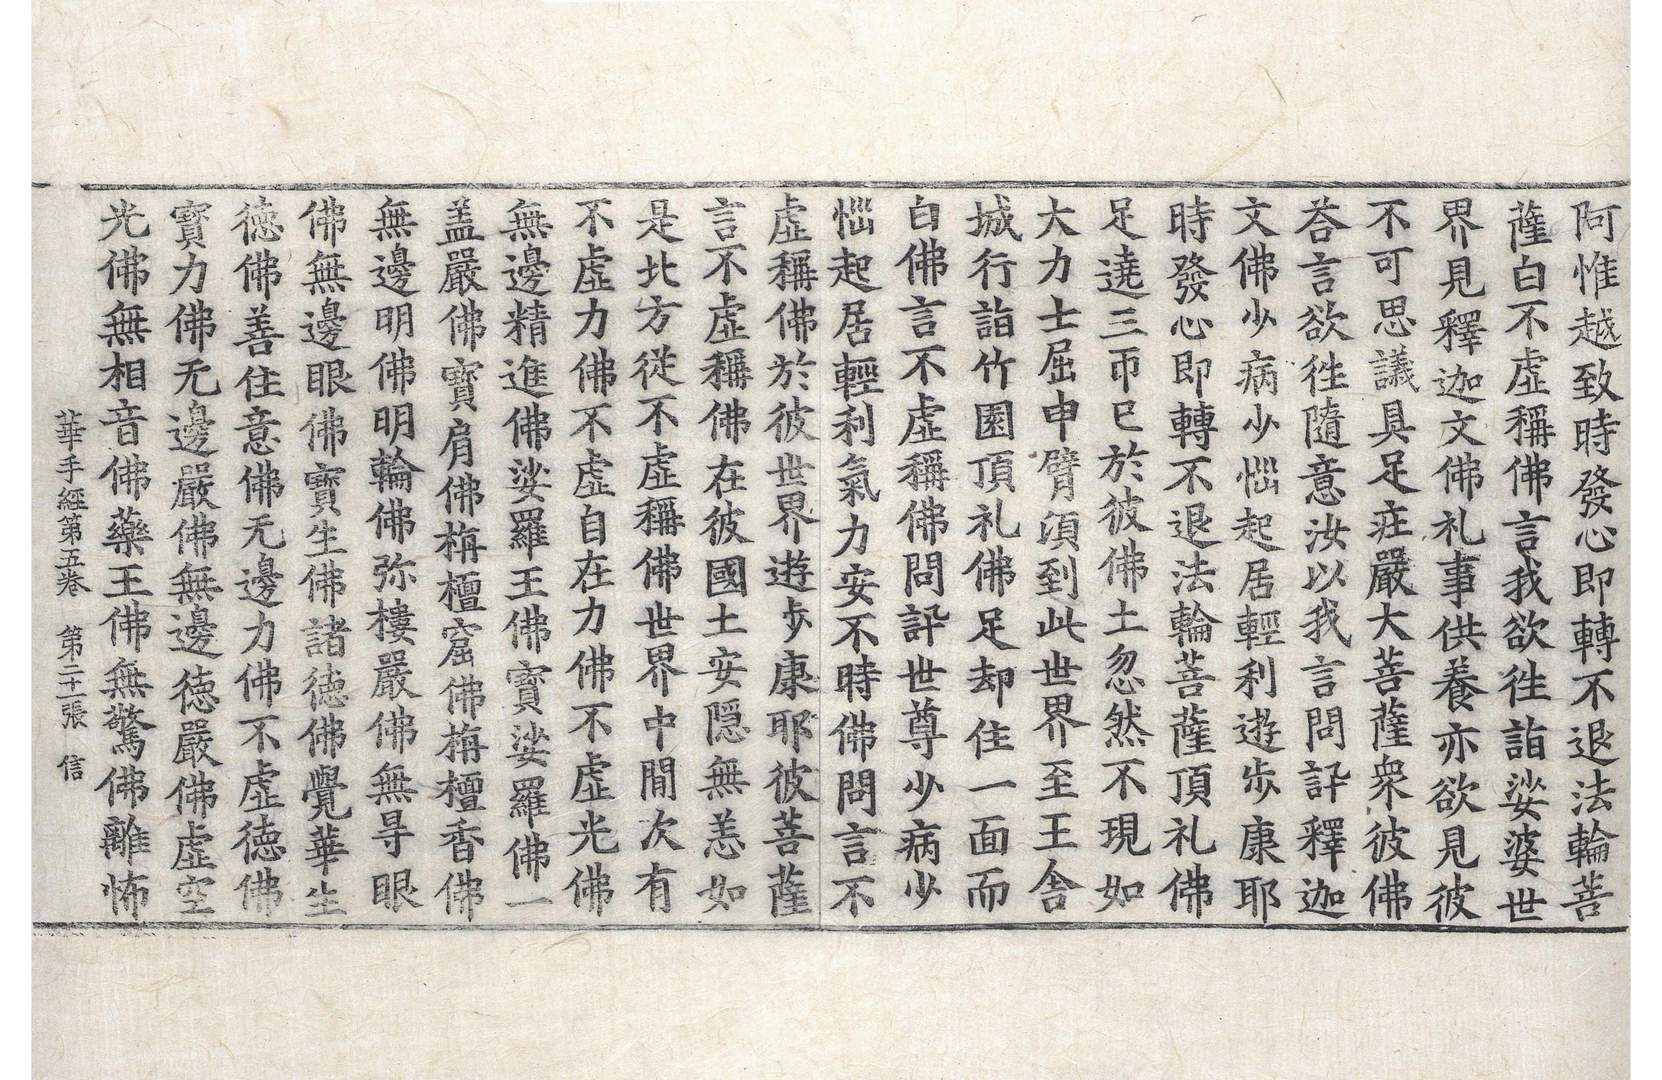 阿惟越致時發心即轉不退法輪菩
薩白不虛稱佛言我欲徃詣娑婆世
界見釋迦文佛礼事供養亦欲見彼
不可思議具足庄嚴大菩薩衆彼佛
荅言欲徃隨意汝以我言問訊釋迦
文佛少病少惱起居輕利遊步康耶
時發心即轉不退法輪菩薩頂礼佛
足遶三帀已於彼佛土忽然不現如
大力士屈申臂湏到此世界至王舍
城行詣竹園頂礼佛足却住一面而
白佛言不虛稱佛問訊世尊少病少
惱起居輕利氣力安不時佛問言不
虛稱佛於彼世界遊步康耶彼菩薩
言不虛稱佛在彼國土安隱無恙如
是北方從不虛稱佛世界中間次有
不虛力佛不虛自在力佛不虛光佛
無邊精進佛娑羅王佛寶娑羅佛一
盖嚴佛寶肩佛栴檀窟佛栴檀香佛
無邊明佛明輪佛弥樓嚴佛無㝵眼
佛無邊眼佛寶生佛諸德佛覺華生
德佛善住意佛无邊力佛不虛德佛
寶力佛无邊嚴佛無邊德嚴佛虛空
光佛無相音佛藥王佛無驚佛離怖
華手經第五卷 第二十一張 信